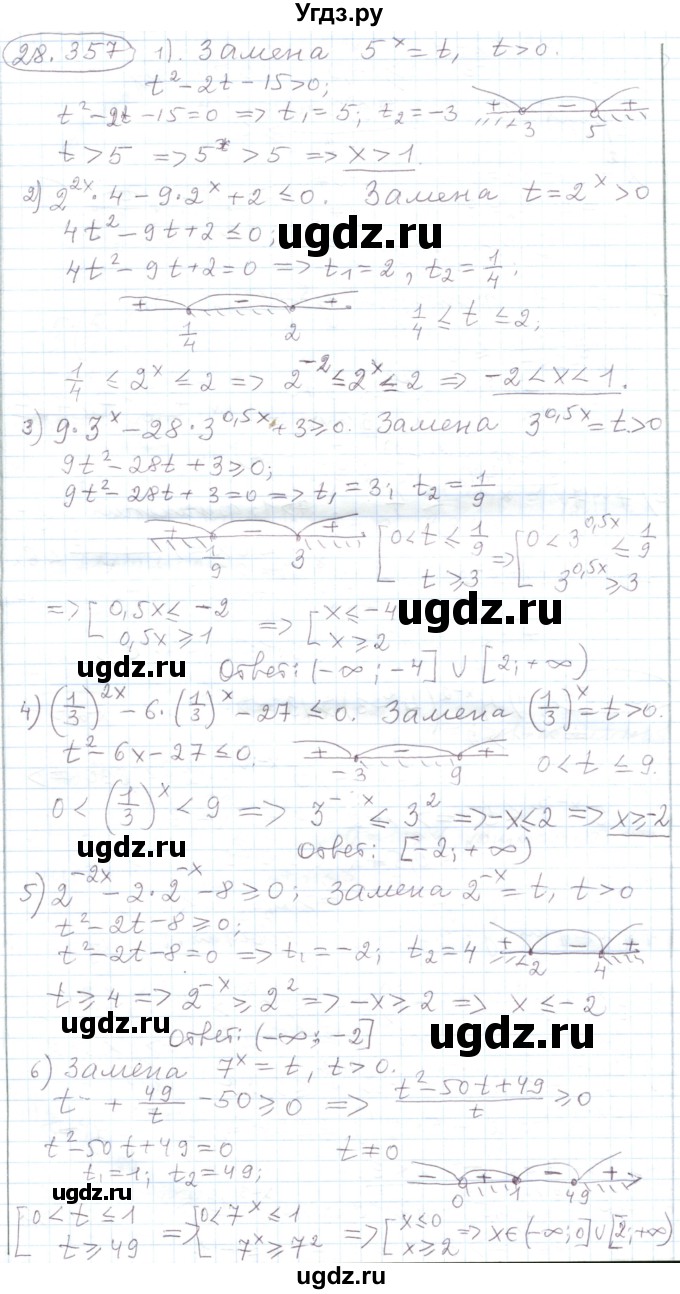 Угдз.ру
28.357 1). Замена 5^x = t, t > 0.
t² - 2t - 15 > 0;
t² - 2t - 15 = 0 => t₁ = 5; t₂ = -3
+ - +
-3 5
t > 5 => 5^x > 5 => x > 1.
2) 2^2x · 4 - 9 · 2^x + 2 ≤ 0. Замена t = 2^x > 0
4t² - 9t + 2 ≤ 0;
ugdz.ru
4t² - 9t + 2 = 0 => t₁ = 2, t₂ = 1/4;
+ - +
1/4 2
1/4 ≤ t ≤ 2;
1/4 ≤ 2^x ≤ 2 => 2^-2 ≤ 2^x ≤ 2 => -2 < x < 1.
3) 9 · 3^x - 28 · 3^0,5x + 3 ≥ 0. Замена 3^0,5x = t > 0
9t² - 28t + 3 ≥ 0;
9t² - 28t + 3 = 0 => t₁ = 3; t₂ = 1/9
+ - +
1/9 3
[ 0 < t ≤ 1/9 => [ 0 < 3^0,5x ≤ 1/9
t ≥ 3 3^0,5x ≥ 3
=> [ 0,5x ≤ -2 => [ x ≤ -4
0,5x ≥ 1 x ≥ 2
ugdz.ru
ugdz.ru
Ответ: (-∞; -4] ∪ [2; +∞)
4) (1/3)^2x - 6 · (1/3)^x - 27 ≤ 0. Замена (1/3)^x = t > 0.
t² - 6x - 27 ≤ 0.
+ - +
-3 9
0 < t ≤ 9.
0 < (1/3)^x < 9 => 3^-x ≤ 3² => -x ≤ 2 => x ≥ -2
ugdz.ru
ugdz.ru
Ответ: [-2; +∞)
5) 2^-2x - 2 · 2^-x - 8 ≥ 0; Замена 2^-x = t, t > 0
t² - 2t - 8 ≥ 0;
t² - 2t - 8 = 0 => t₁ = -2; t₂ = 4
+ - +
-2 4
t ≥ 4 => 2^-x ≥ 2² => -x ≥ 2 => x ≤ -2
ugdz.ru
ugdz.ru
Ответ: (-∞; -2]
6) Замена 7^x = t, t > 0.
t + 49/t - 50 ≥ 0 => (t² - 50t + 49)/t ≥ 0
t² - 50t + 49 = 0 t ≠ 0
t₁ = 1; t₂ = 49;
- + - +
0 1 49
ugdz.ru
ugdz.ru
[ 0 < t ≤ 1 => [ 0 < 7^x ≤ 1 => [ x ≤ 0 => x ∈ (-∞; 0] ∪ [2; +∞)
t ≥ 49 7^x ≥ 7² x ≥ 2
ugdz.ru